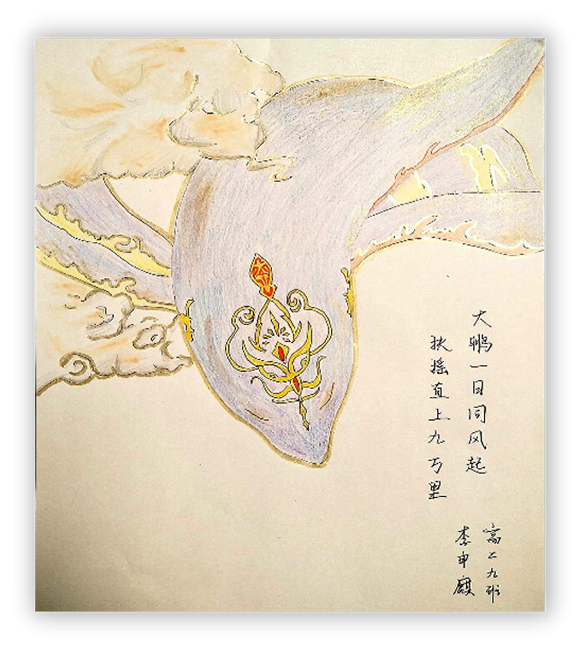 大鹏一日同风起
扶摇直上九万里
高二九班
李申麒